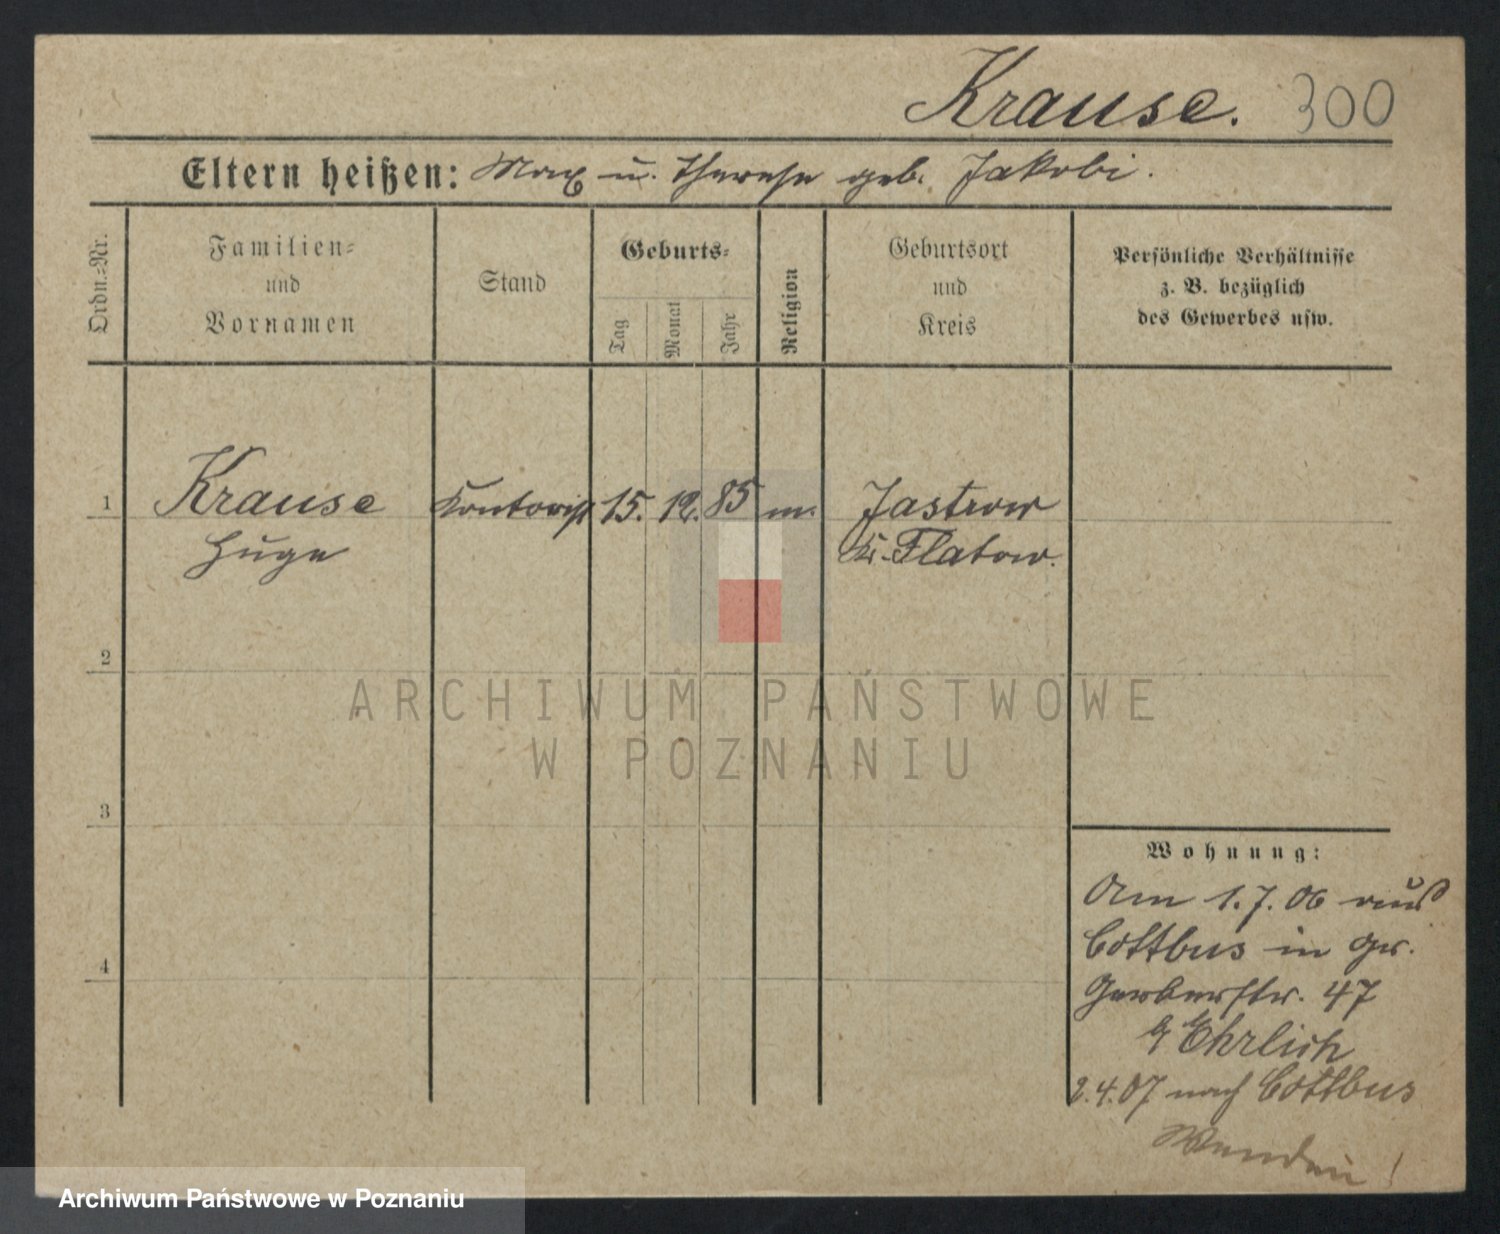 Krause. 300
Eltern heißen: Max u. Therese geb. Jakobi.
Ordn.=Nr.
Familien=
und
Vornamen
Stand
Geburts=
Tag
Monat
Jahr
Religion
Geburtsort
und
Kreis
Persönliche Verhältnisse
z. B. bezüglich
des Gewerbes usw.
1 Krause Kontorist 15. 12. 85 m. Jastrow
Hugo Kr. Flatow.
2
3
4
Wohnung:
Am 1.7.06 aus
Cottbus in Gr.
Gerberstr. 47
b/ Ehrlich
2.4.07 nach Cottbus
Wenden!
ARCHIWUM PAŃSTWOWE
W POZNANIU
Archiwum Państwowe w Poznaniu